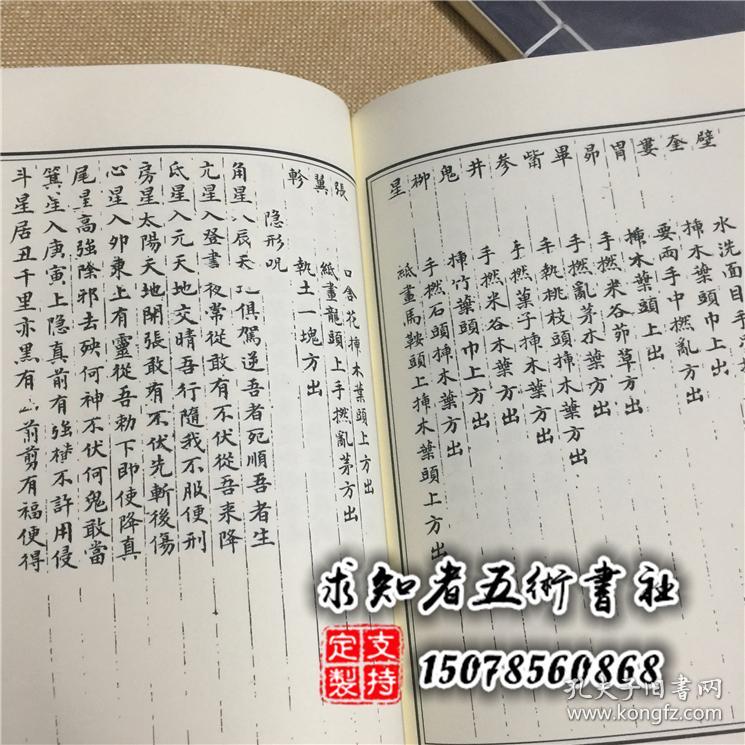 壁 水洗面目手
奎 揷木葉頭巾上方出
婁 要兩手中撚亂方出
胃 揷木葉頭上出
昴 手撚米谷茆草方出
畢 手撚亂茅木葉方出
觜 手執桃枝頭揷木葉方出
参 手撚菓子揷木葉方出
井 手撚米谷木葉方出
鬼 揷竹葉頭巾上方出
柳 手撚石頭揷木葉方出
星 紙畫馬鞍頭上揷木葉頭上方出
張 口含花揷木葉頭上方出
翼 紙畫龍頭上手撚亂茅方出
軫 執土一塊方出
隐形呪
角星入辰天俱駕逆吾者死順吾者生
亢星入登書夜常從敢有不伏從吾来降
氐星入元天地交晴吾行隨我不服便刑
房星太陽天地開張敢有不伏先斬後傷
心星入卯東上有靈從吾勅下即使降真
尾星高強除邪去殃何神不伏何鬼敢當
箕星入庚寅上隐真前有強樁不許用侵
斗星居丑千里亦黑有前剪有福便得
求知者五術書社
支持定製
15078560868
孔夫子旧書网
www.kongfz.com